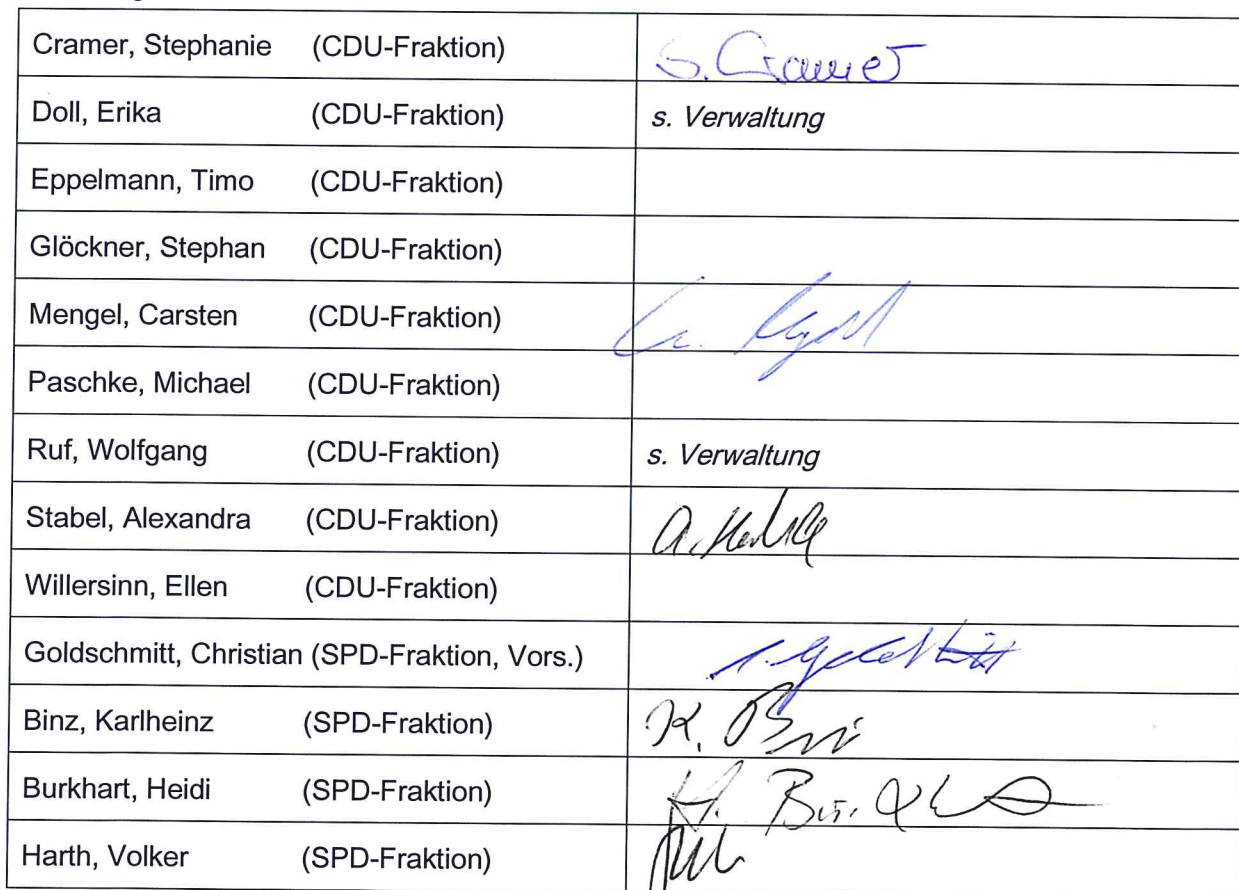 Cramer, Stephanie (CDU-Fraktion) S. Cramer
Doll, Erika (CDU-Fraktion) s. Verwaltung
Eppelmann, Timo (CDU-Fraktion)
Glöckner, Stephan (CDU-Fraktion)
Mengel, Carsten (CDU-Fraktion)
Paschke, Michael (CDU-Fraktion)
Ruf, Wolfgang (CDU-Fraktion) s. Verwaltung
Stabel, Alexandra (CDU-Fraktion)
Willersinn, Ellen (CDU-Fraktion)
Goldschmitt, Christian (SPD-Fraktion, Vors.)
Binz, Karlheinz (SPD-Fraktion)
Burkhart, Heidi (SPD-Fraktion)
Harth, Volker (SPD-Fraktion)